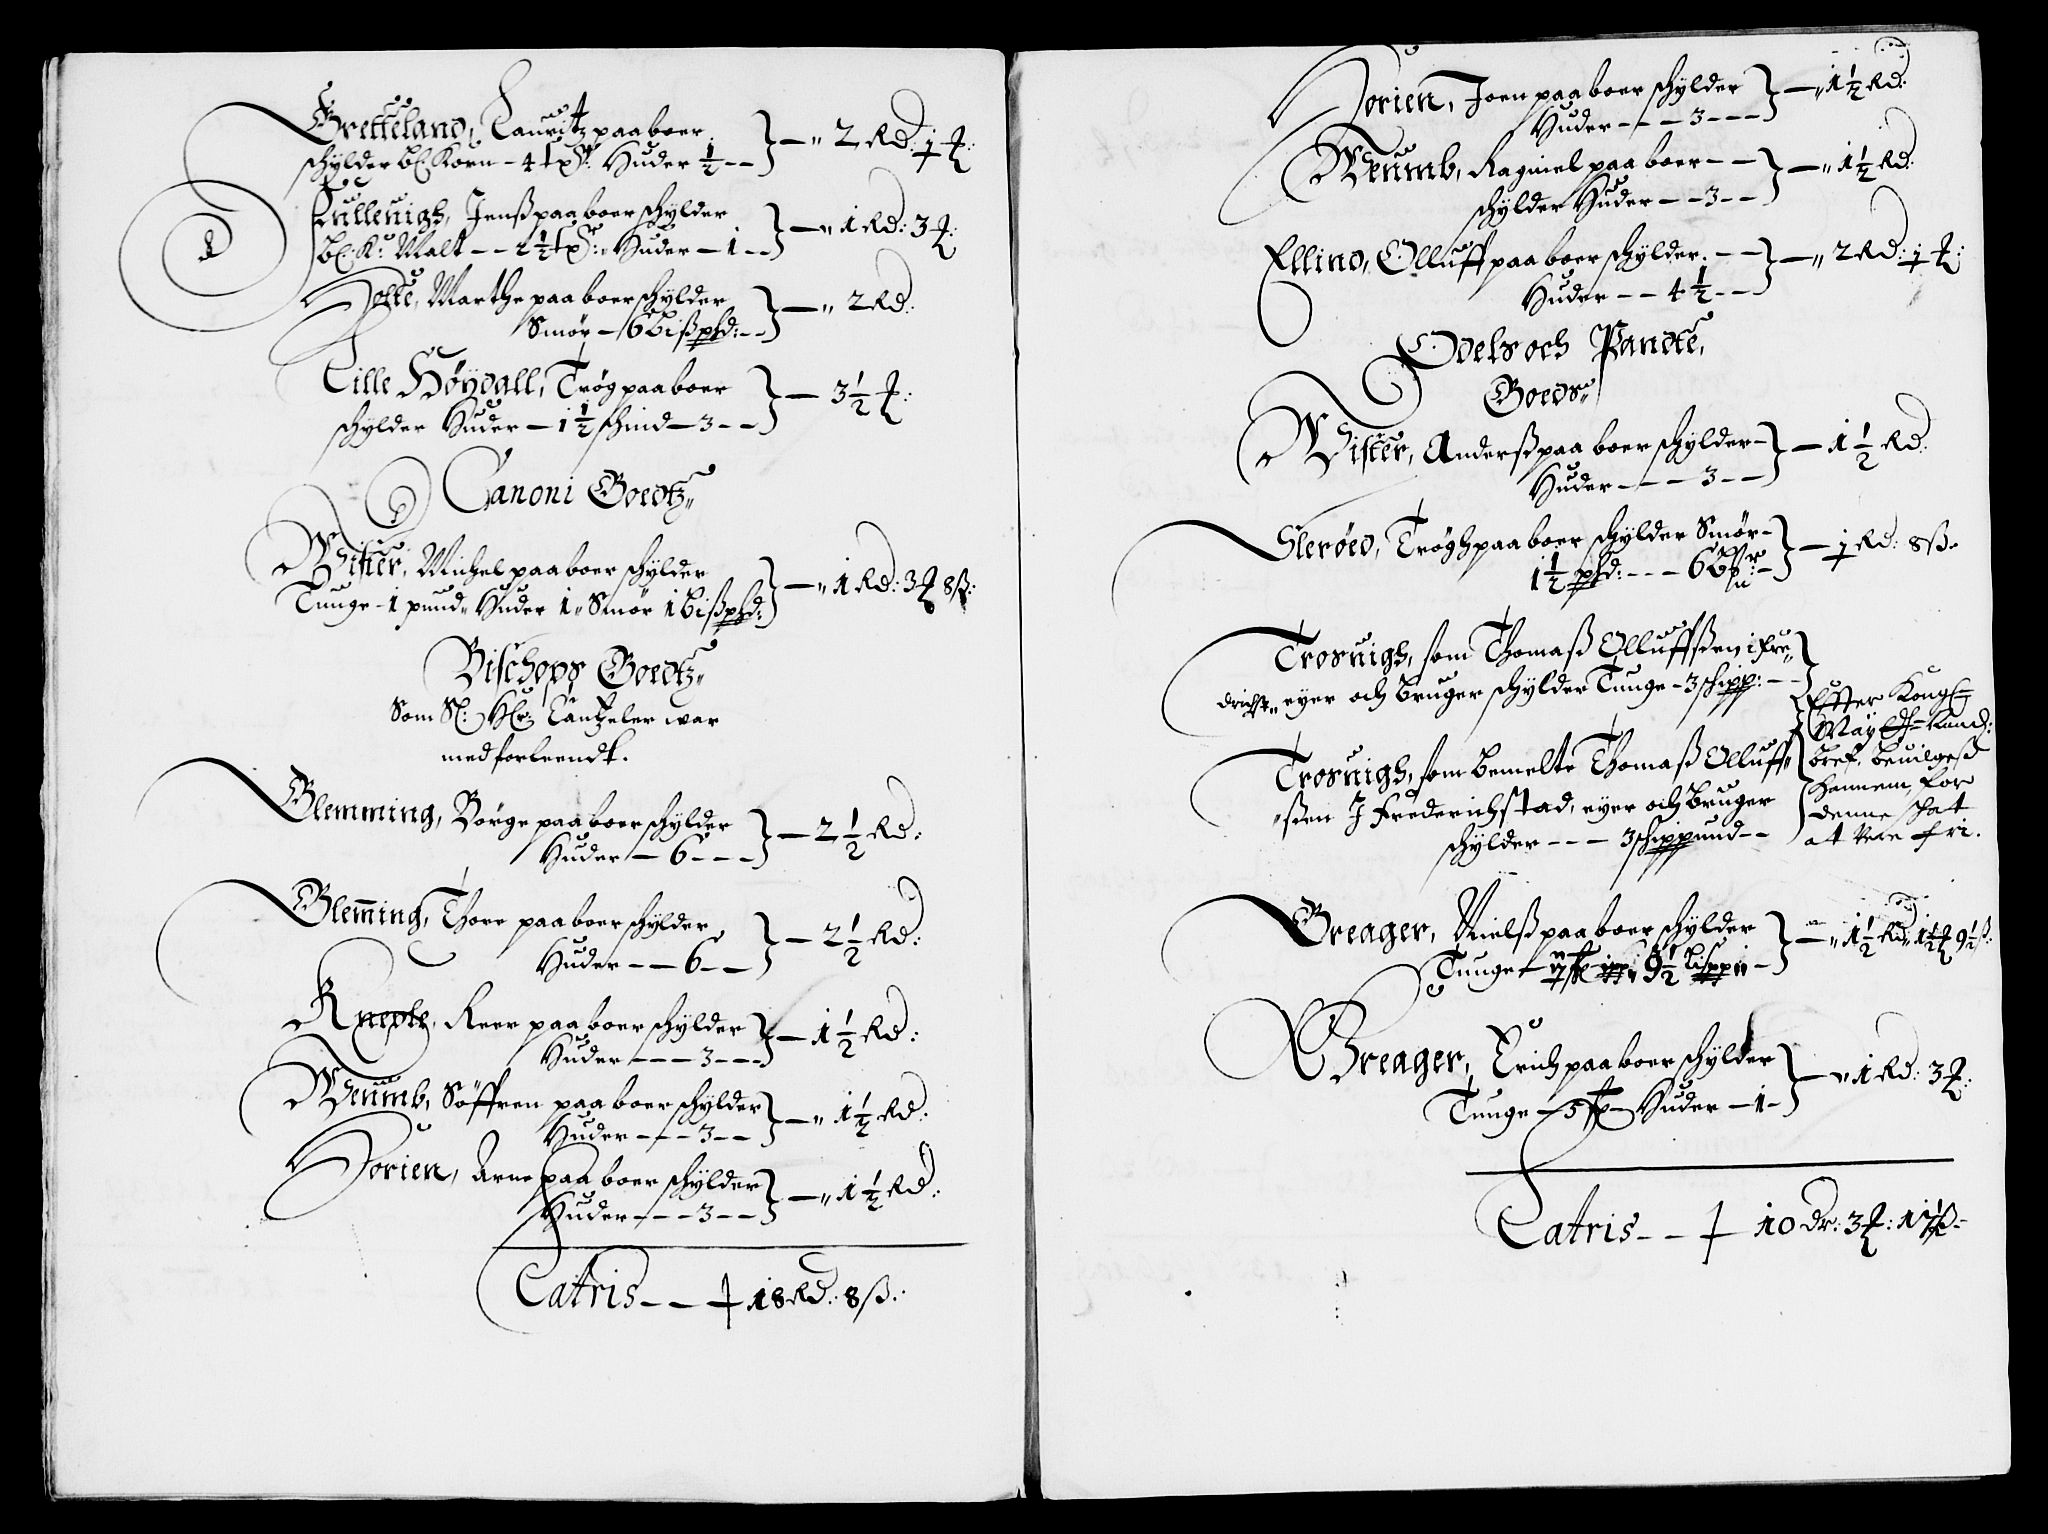 Gretteland, Lauritz paa boer
schylder bl: Korn - 4 tpd: Huder 1/2 - - } - " 2 Rd: 1 ƶ:
Lulleuigh, Jenß paa boer schylder
bl: K: Malt - - 2 1/2 tpd: " Huder - 1 - - } - " 1 Rd: 3 ƶ:
Marthe paa boer schylder
Smør - 6 bißpd: - - } - " 2 Rd:
Lille Høydall, Trøg paa boer
schylder Huder - 1 1/2 schind - 3 - - } - 3 1/2 ƶ:
Canoni Goedtz "
Wister, Michel paa boer schylder
Tunge - 1 pund " Huder 1 " Smør 1 bißpd: } - " 1 Rd: 3 ƶ 8 ß:
Bischops Goedtz "
Som Sl: Hr: Cantzeler war
med forleendt.
Glemming, Børge paa boer schylder
Huder - 6 - - - } - 2 1/2 Rd:
Glem̄ing, Thore paa boer schylder
Huder - - 6 - - } - 2 1/2 Rd:
Knepte, Reer paa boer schylder
Huder - - - 3 - - - } - 1 1/2 Rd:
Weumb, Söffren paa boer schylder
Huder - - - 3 - - } - " 1 1/2 Rd:
Torien, Arne paa boer schylder
Huder - - - 3 - - } - " 1 1/2 Rd:
Latris - - 18 Rd: 8 ß:
Torien, Joen paa boer schylder
Huder - - - 3 - - - } - " 1 1/2 Rd:
Weumb, Ragniel paa boer - -
schylder Huder - - 3 - - } - " 1 1/2 Rd:
Ellind, Olluff paa boer schylder. - -
Huder - - 4 1/2 - - } - " 2 Rd: 1 ƶ:
Odels och Pandte,
Goeds "
Wister, Anderß paa boer schylder -
Huder - - - 3 - - } - 1 1/2 Rd:
Slerøed, Trøgh paa boer schylder Smør -
1 1/2 pd: - - - 6 - } - 1 Rd: 8 ß.
Trosuigh, som Thomaß Olluffßen i Fre "
drichst " eyer och bruger schylder Tunge - 3 schipp: - -
Trosuigh, som bemelte Thomaß Olluff "
" ßen J Frederichstad, eyer och bruger
schylder - - - 3 schippund - -
Effter Kongl=
May
bref, beuilgeß
hannem, for
denne schat
at vere fri.
Greager, Nielß paa boer schylder
Tunge - 9 1/2 lispp " - } - " 1 1/2 Rd 1 1/2 ƶ 9 1/2 ß:
Greager, Erich paa boer schylder
Tunge - 5 - Huder - 1 - } - " 1 Rd: 3 ƶ:
Latris - - 10 dr: 3 ƶ: 17 1/2 ß -